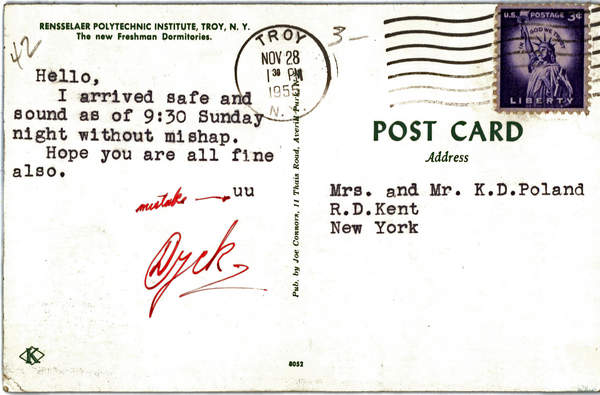 RENSSELAER POLYTECHNIC INSTITUTE, TROY, N. Y.
The new Freshman Dormitories.
42
Hello,
I arrived safe and
sound as of 9:30 Sunday
night without mishap.
Hope you are all fine
also.
mistake uu
Dyck
K
Pub. by Joe Connors, 11 Thais Road, Averill Park, N.
8052
TROY
NOV 28
1 30 PM
195
N.
3-
U.S. POSTAGE 3¢
IN GOD WE TRUST
LIBERTY
POST CARD
Address
Mrs. and Mr. K.D.Poland
R.D.Kent
New York